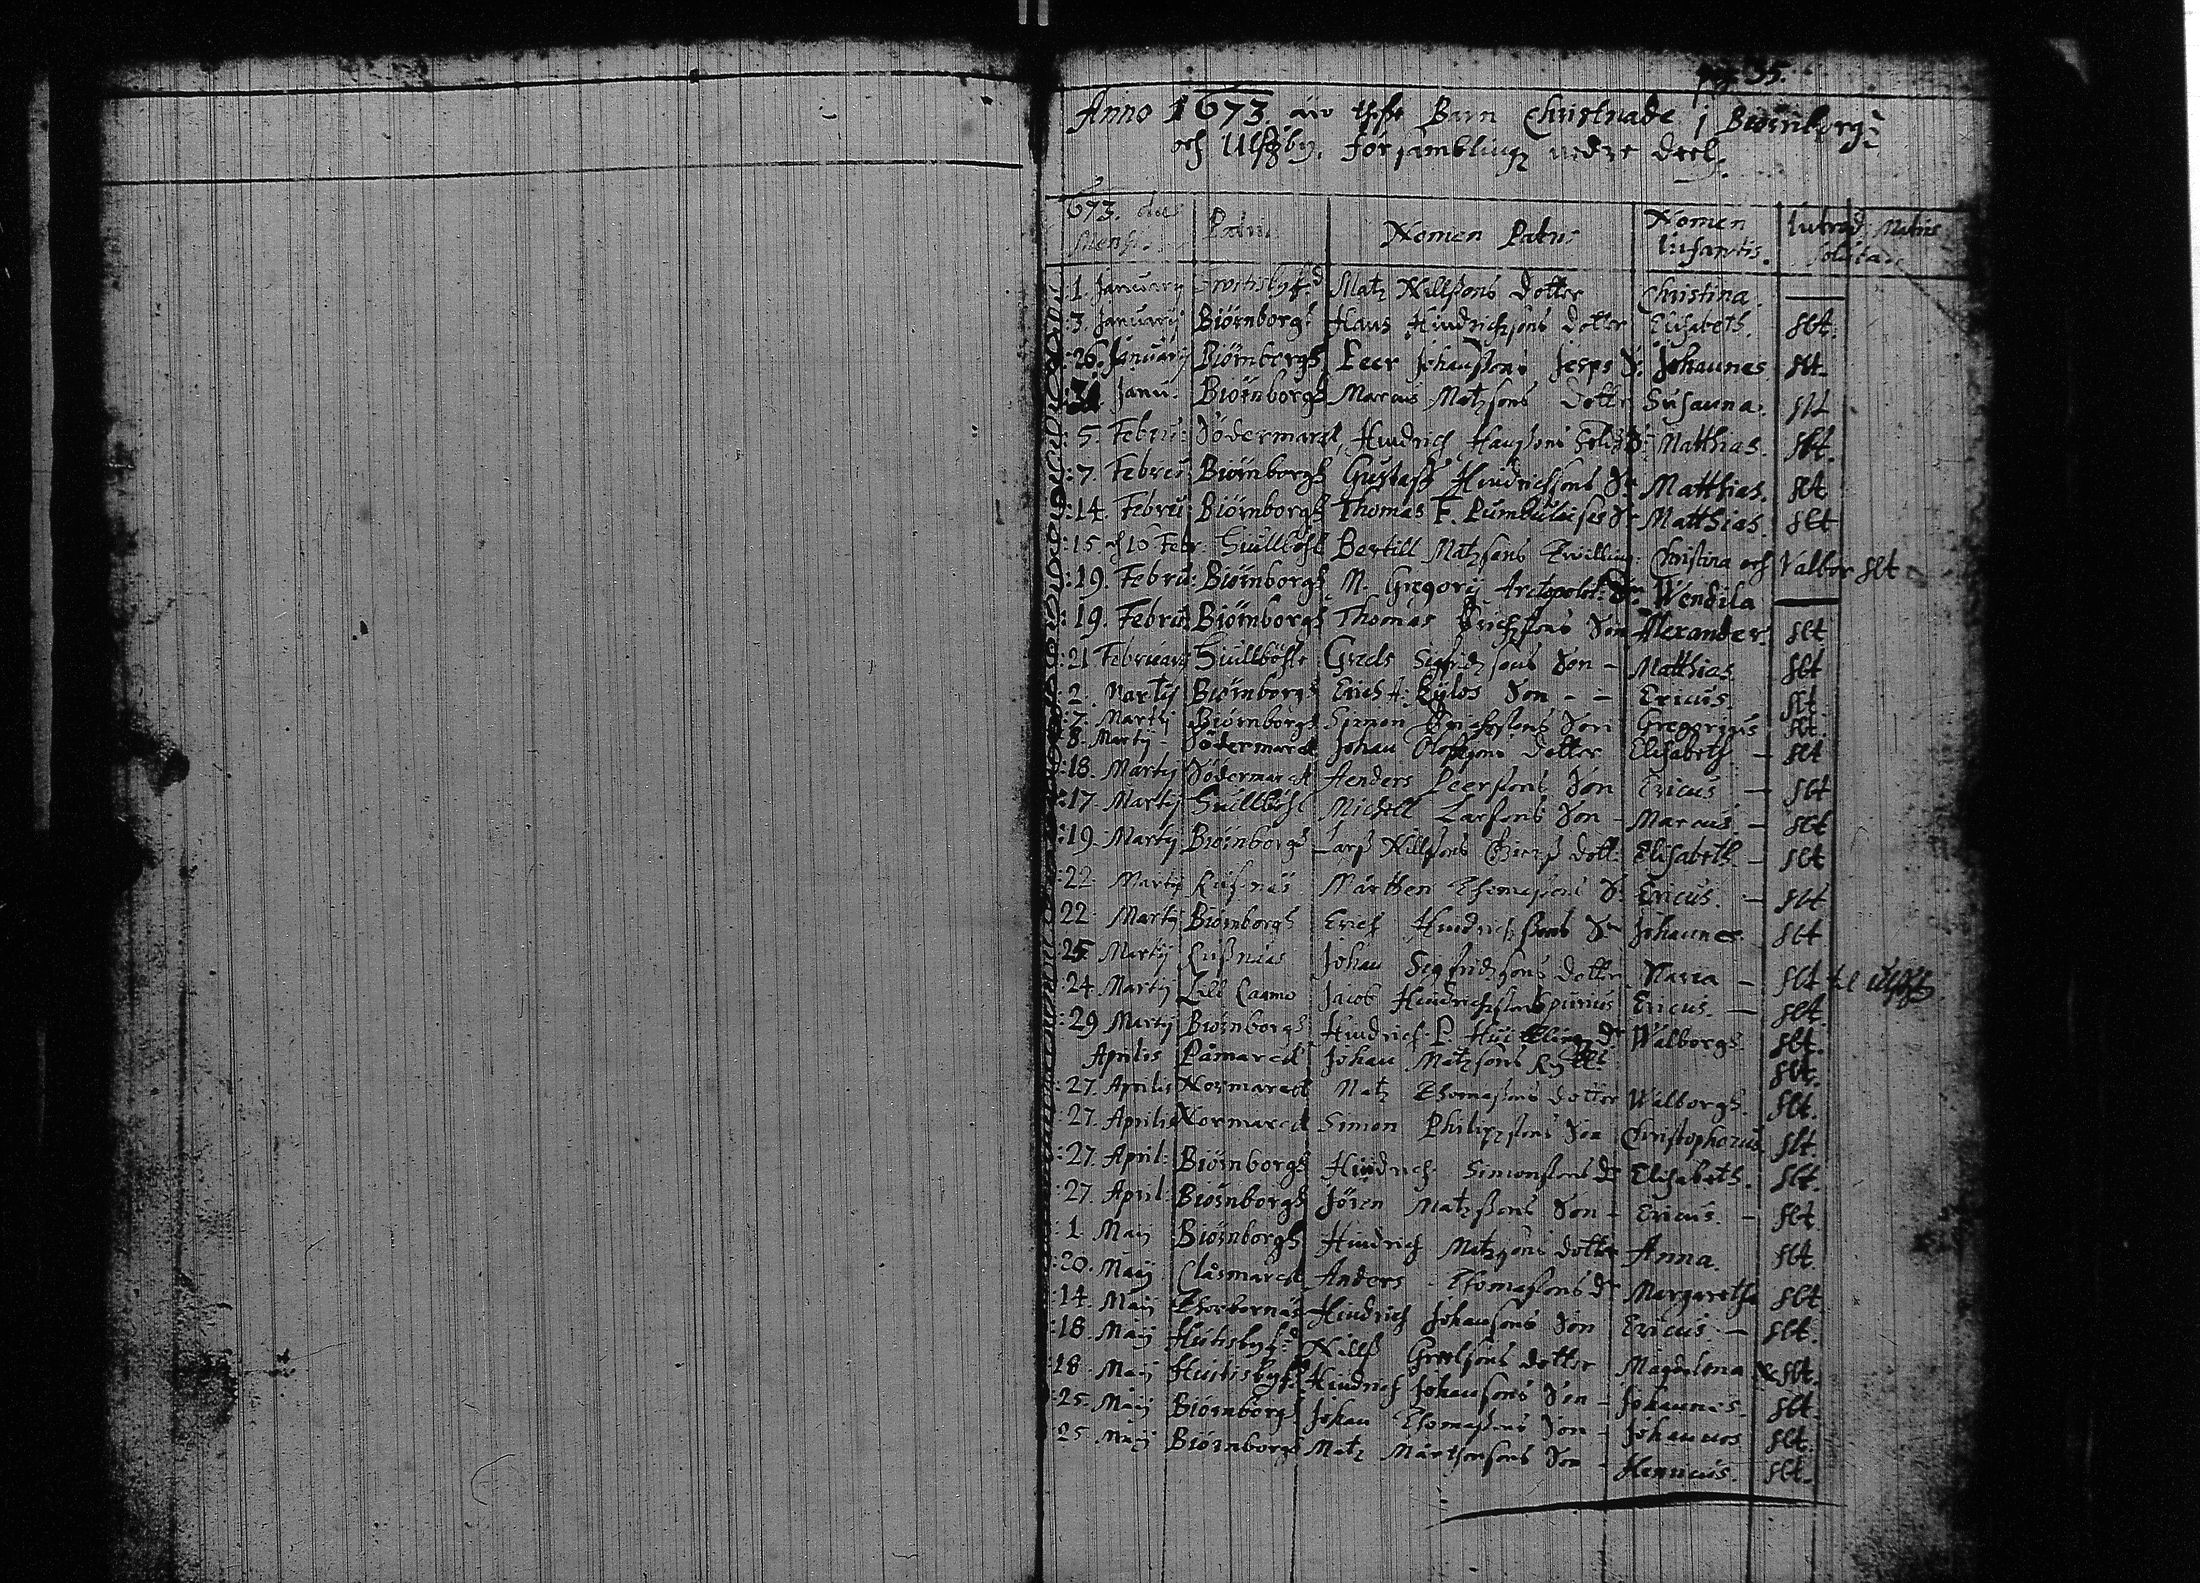 pag. 35.
Anno 1673. äro thesse Barn Christnade j Biörnborg
och Ulfzby. församblingz nedre deel.
673. dies Mensis Patria Nomen Patris Nomen Infantis. Introd. Matris solita
1. January Matz Nillssons dotter Christina.
3. January Biörnborgh Hans Hindrichsons dotter Elisabeth. slt.
26. January Biörnborgh Peer Johanssons Jesps S. Johannes. slt.
31. Janu. Biörnborgh Marcus Matzsons dotter Susanna. slt
5. Febru: Södermarck Hindrich Hanssons S: Matthias. slt.
7. Febru Biörnborgh Gustaff Hindrichsons Sn Matthias. slt
14. Febru Biörnborgh Thomas F. Sn Matthias. slt
15. och 10 Feb. Siullböhle Bertill Matzsons Twilling: Christina och Valbor slt
19. Febru: Biörnborgh M. Gregorij Arctopolit: Dr. Wendila
19. Febru: Biörnborgh Thomas Erichssons Son Alexander. slt
21 February Siullböhle Greels Sigfridzsons Son - Matthias. slt
2. Martij Biörnborgh Erich Kylös Son - - Ericus. slt
7. Martij Biörnborgh Simon Son Gregorius slt.
8. Martij - Södermarck Johan Olofssons dotter Elisabeth. - slt
18. Martij Södermarck Aenders Peerssons Son Ericus - slt
17. Martij Siullböhl Michell Larssons Son - Marcus. - slt
19. Martij Biörnborgh Larss Nillssons dott: Elisabeth - slt
22. Martij Lusnäs Mårthen Thomassons S. Ericus. - slt
22 Martij Biörnborgh Erich Hindrichssons Sn Johannes. slt
25. Martij Lussnäs Johan Sigfridzsons dotter Maria - slt
24. Martij Lill Jacob Hindrichssons Ericus. - slt
29 Martij Biörnborgh Hindrich P. Dr Walborgh. slt.
Aprilis Påmarck Johan Matzsons slt.
27. Aprilis Normarck Matz Thomassons dotter Walborgh. slt.
27. Aprilis Normarck Simon Philipssons Son Christophorus slt.
27. April: Biörnborgh Hindrich Simonssons dr Elisabeth. slt.
27. April: Biörnborgh Jören Matzssons Son - Ericus. - slt.
1. Maij Biörnborgh Hindrich Matzsons dotter Anna. slt.
20. Maij Clåsmarck Anders Thomassons dr Margaretha slt.
14. Maij Thorbernäs Hindrich Johanssons Son Ericus - slt.
18. Maij Huitisbyf:d Nillss Greelssons dotter Magdalena slt.
18. Maij Huitisbyf:d Hindrich Johanssons Son - Johannes. slt.
25. Maij Biörnborgh Johan Thomassons Son - Johannes slt.
25. Maij Biörnborgh Matz Mårthenssons Son - Henricus. slt.